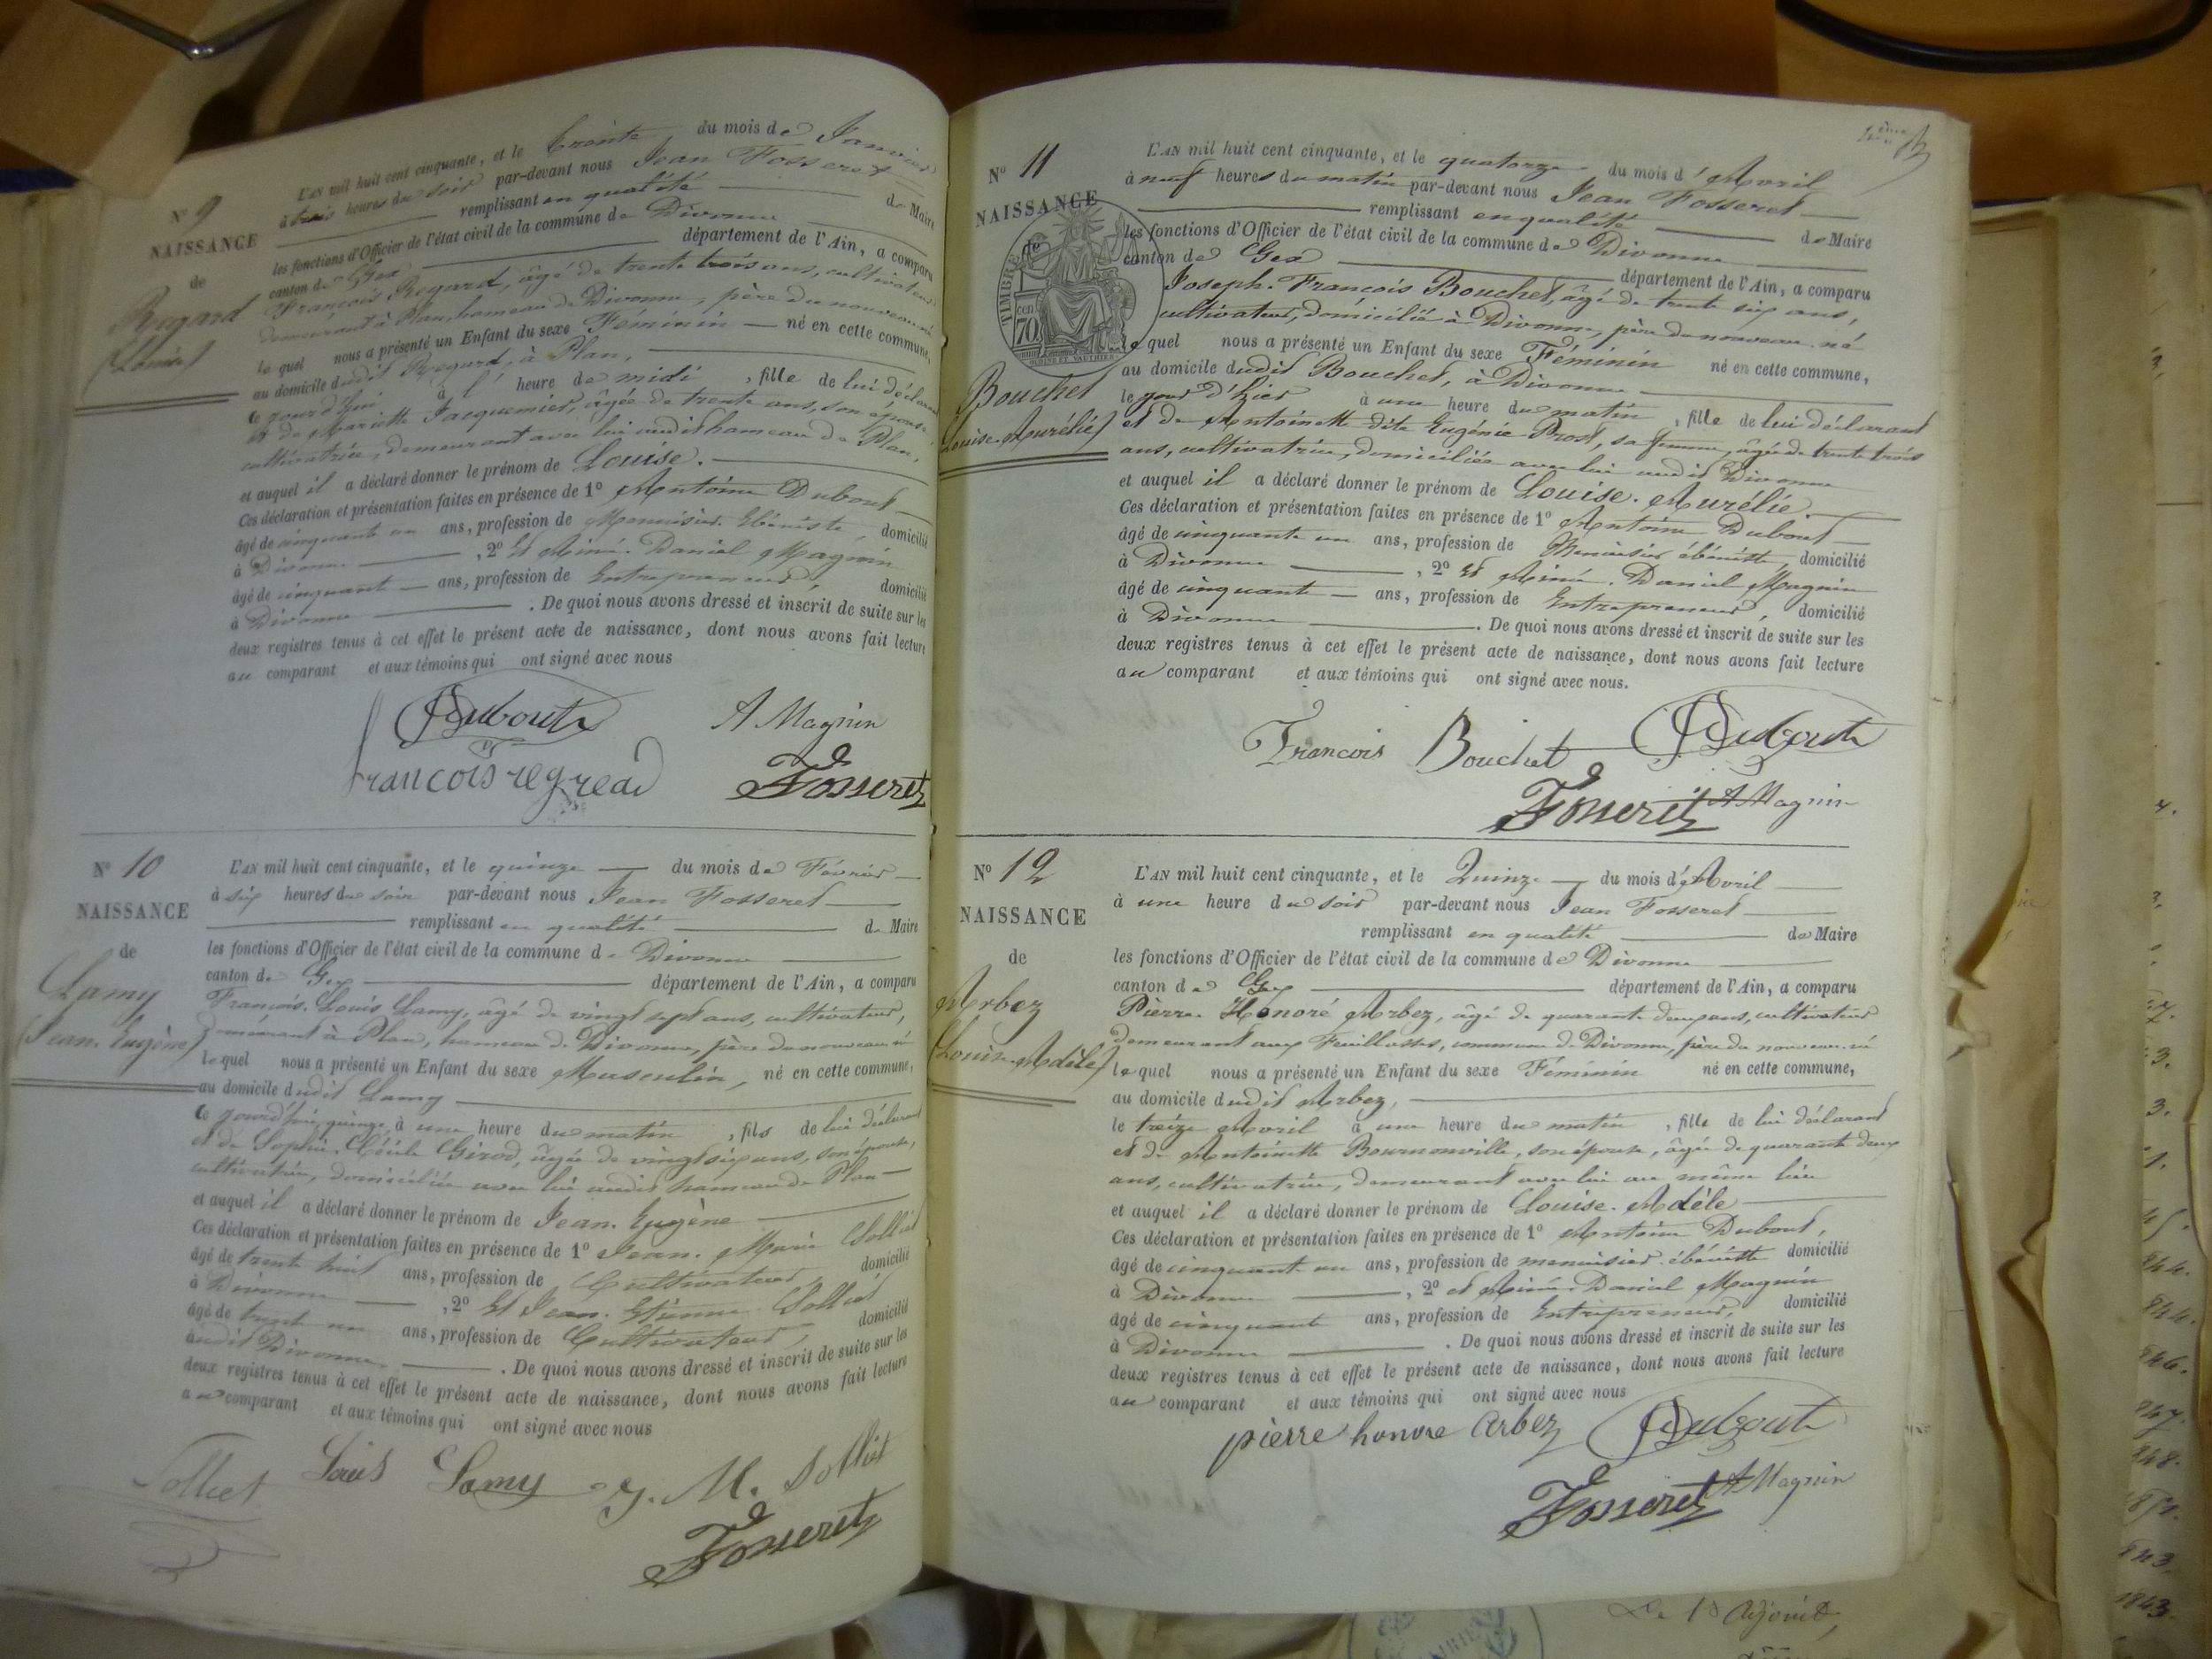 N° 9
NAISSANCE
de
Regard
(Louise)
L'AN mil huit cent cinquante, et le trente du mois de Janvier
à trois heures du soir par-devant nous Jean Fosseret
remplissant en qualité de Maire
les fonctions d'Officier de l'état civil de la commune de Divonne
canton de Gex département de l'Ain, a comparu
François Regard, âgé de trente trois ans, cultivateur
demeurant à Plan, hameau de Divonne, père du nouveau né
lequel nous a présenté un Enfant du sexe Féminin né en cette commune,
au domicile dudit Regard, à Plan,
ce jourd'hui à l' heure de midi, fille de lui déclarant
et de Mariette Jacquemier, âgée de trente ans, son épouse,
cultivatrice, demeurant avec lui audit hameau de Plan,
et auquel il a déclaré donner le prénom de Louise.
Ces déclaration et présentation faites en présence de 1° Antoine Dubout
âgé de cinquante un ans, profession de Menuisier Ebéniste, domicilié
à Divonne, 2° Et Aimé-Daniel Magnin
âgé de cinquante ans, profession de Entrepreneur, domicilié
à Divonne. De quoi nous avons dressé et inscrit de suite sur les
deux registres tenus à cet effet le présent acte de naissance, dont nous avons fait lecture
au comparant et aux témoins qui ont signé avec nous
Dubout A Magnin
francois regread Fosseret
N° 10
NAISSANCE
de
Lamy
(Jean-Eugène)
L'AN mil huit cent cinquante, et le quinze du mois de Février
à six heures du soir par-devant nous Jean Fosseret
remplissant en qualité de Maire
les fonctions d'Officier de l'état civil de la commune de Divonne
canton de Gex département de l'Ain, a comparu
François-Louis Lamy, âgé de vingt sept ans, cultivateur,
Demeurant à Plan, hameau de Divonne, père du nouveau né
lequel nous a présenté un Enfant du sexe Masculin, né en cette commune,
au domicile dudit Lamy
ce jourd'hui, quinze, à une heure du matin, fils de lui déclarant
et de Sophie-Cécile Girod, âgée de vingt six ans, son épouse,
cultivatrice, domiciliée avec lui audit hameau de Plan
et auquel il a déclaré donner le prénom de Jean-Eugène
Ces déclaration et présentation faites en présence de 1° Jean-Marie Solliet
âgé de trente huit ans, profession de Cultivateur, domicilié
à Divonne, 2° Et Jean-Etienne Solliet
âgé de trente un ans, profession de Cultivateur, domicilié
audit Divonne. De quoi nous avons dressé et inscrit de suite sur les
deux registres tenus à cet effet le présent acte de naissance, dont nous avons fait lecture
au comparant et aux témoins qui ont signé avec nous
Solliet Louis Lamy J. M. Solliet
Fosseret
N° 11
NAISSANCE
de
TIMBRE
70
Bouchet
Louise-Aurélie)
L'AN mil huit cent cinquante, et le quatorze du mois d'Avril
à neuf heures du matin par-devant nous Jean Fosseret
remplissant en qualité de Maire
les fonctions d'Officier de l'état civil de la commune de Divonne
canton de Gex département de l'Ain, a comparu
Joseph-François Bouchet, âgé de trente six ans,
cultivateur, domicilié à Divonne, père du nouveau né
lequel nous a présenté un Enfant du sexe Féminin né en cette commune,
au domicile dudit Bouchet, à Divonne
le jour d'hier à une heure du matin, fille de lui déclarant
et de Antoinette dite Eugénie Prost, sa femme, âgée de trente trois
ans, cultivatrice, domiciliée avec lui audit Divonne
et auquel il a déclaré donner le prénom de Louise-Aurélie.
Ces déclaration et présentation faites en présence de 1° Antoine Dubout
âgé de cinquante un ans, profession de Menuisier ébéniste, domicilié
à Divonne, 2° Et Aimé-Daniel Magnin
âgé de cinquante ans, profession de Entrepreneur, domicilié
à Divonne. De quoi nous avons dressé et inscrit de suite sur les
deux registres tenus à cet effet le présent acte de naissance, dont nous avons fait lecture
au comparant et aux témoins qui ont signé avec nous.
Francois Bouchet Dubout
Fosseret A Magnin
N° 12
NAISSANCE
de
Arbez
(Louise-Adèle)
L'AN mil huit cent cinquante, et le Quinze du mois d'Avril
à une heure du soir par-devant nous Jean Fosseret
remplissant en qualité de Maire
les fonctions d'Officier de l'état civil de la commune de Divonne
canton de Gex département de l'Ain, a comparu
Pierre Honoré Arbez, âgé de quarante deux ans, cultivateur
demeurant aux Feuillasses, commune de Divonne, père du nouveau né
lequel nous a présenté un Enfant du sexe Féminin né en cette commune,
au domicile dudit Arbez,
le treize Avril à une heure du matin, fille de lui déclarant
et de Antoinette Bournonville, son épouse, âgée de quarante deux
ans, cultivatrice, demeurant avec lui au même lieu
et auquel il a déclaré donner le prénom de Louise-Adèle
Ces déclaration et présentation faites en présence de 1° Antoine Dubout,
âgé de cinquante un ans, profession de menuisier ébéniste domicilié
à Divonne, 2° et Aimé-Daniel Magnin
âgé de cinquante ans, profession de Entrepreneur, domicilié
à Divonne. De quoi nous avons dressé et inscrit de suite sur les
deux registres tenus à cet effet le présent acte de naissance, dont nous avons fait lecture
au comparant et aux témoins qui ont signé avec nous
pierre honore arbez Dubout
Fosseret A Magnin